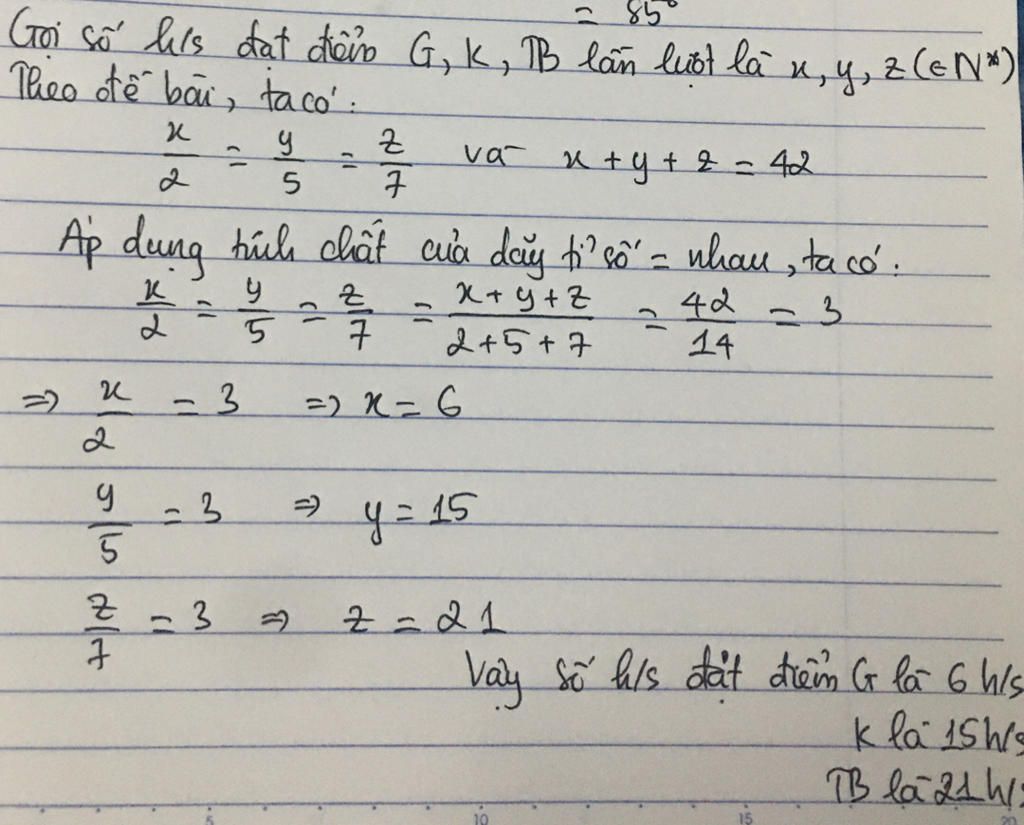 = 85°
Gọi số h/s đạt điểm G, K, TB lần lượt là x, y, z (∈ N*)
Theo đề bài, ta có:
x/2 = y/5 = z/7 và x + y + z = 42
Áp dụng tính chất của dãy tỉ số = nhau, ta có:
x/2 = y/5 = z/7 = (x + y + z)/(2 + 5 + 7) = 42/14 = 3
=> x/2 = 3 => x = 6
y/5 = 3 => y = 15
z/7 = 3 => z = 21
Vậy số h/s đạt điểm G là 6 h/s
K là 15 h/s
TB là 21 h/s
5 10 15 20